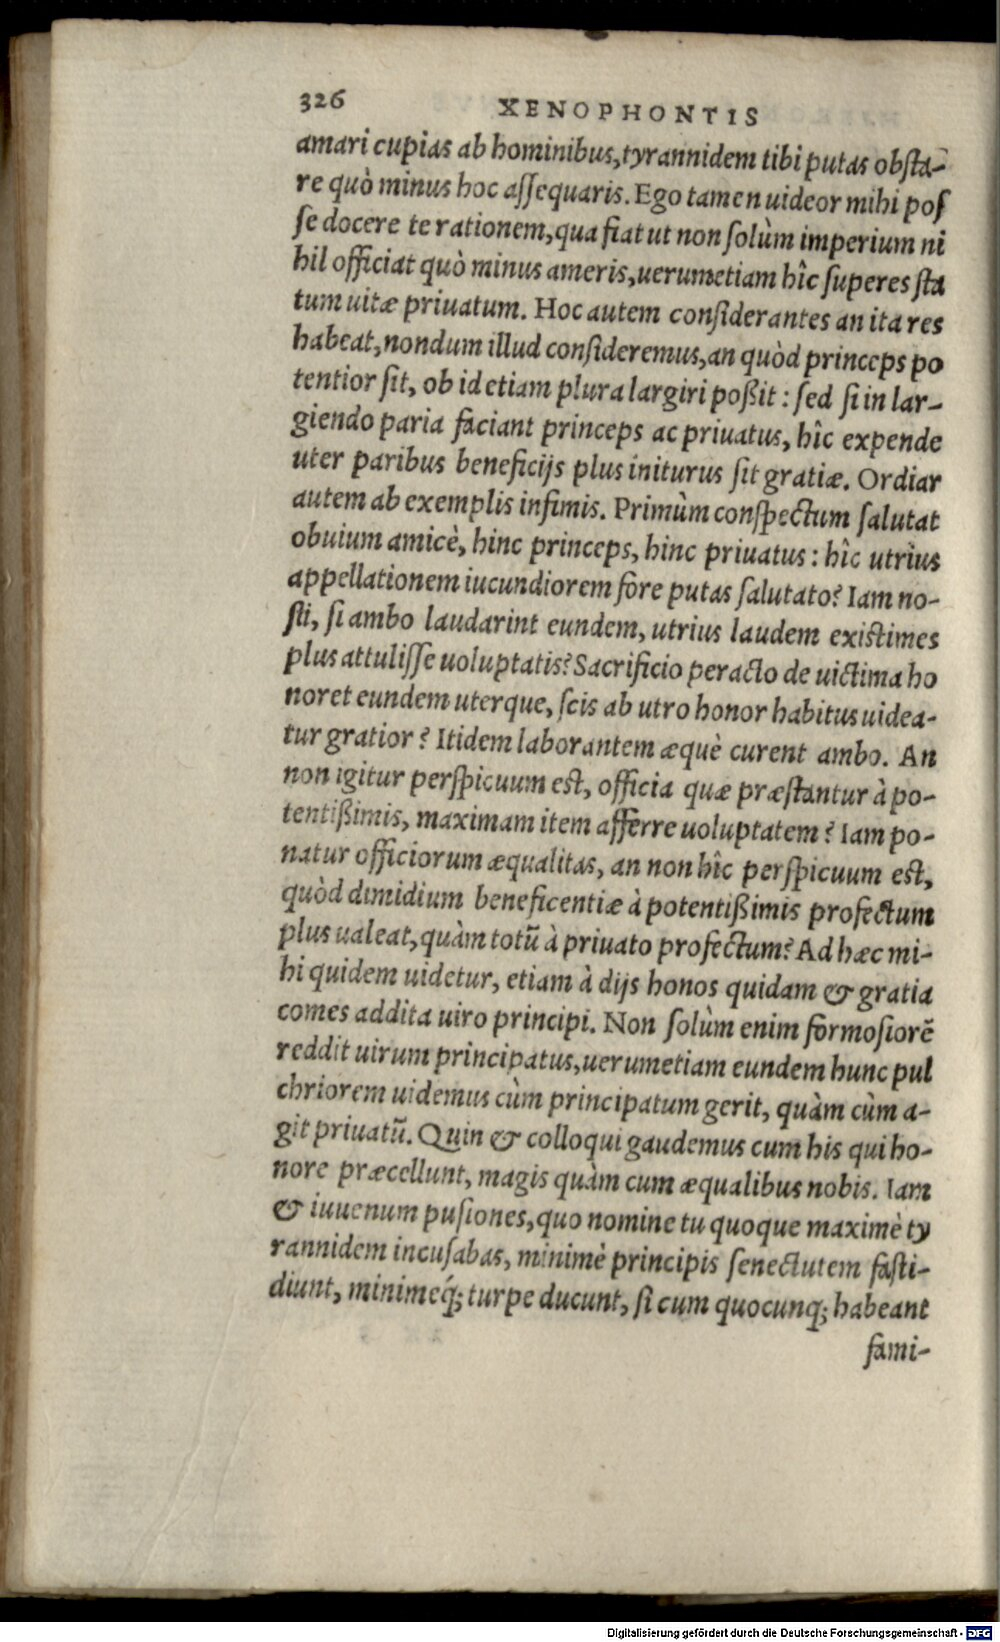 326 XENOPHONTIS
amari cupias ab hominibus, tyrannidem tibi putas obsta-
re quò minus hoc aſſequaris. Ego tamen uideor mihi poſ
ſe docere te rationem, qua fiat ut non ſolùm imperium ni
hil officiat quò minus ameris, uerumetiam hîc ſuperes ſta
tum uitæ priuatum. Hoc autem conſiderantes an ita res
habeat, nondum illud conſideremus, an quòd princeps po
tentior ſit, ob id etiam plura largiri poßit : ſed ſi in lar-
giendo paria faciant princeps ac priuatus, hîc expende
uter paribus beneficijs plus initurus ſit gratiæ. Ordiar
autem ab exemplis infimis. Primùm conſpectum ſalutat
obuium amicè, hinc princeps, hinc priuatus : hîc utrius
appellationem iucundiorem fore putas ſalutato? Iam no-
ſti, ſi ambo laudarint eundem, utrius laudem existimes
plus attuliſſe uoluptatis? Sacrificio peracto de uictima ho
noret eundem uterque, ſcis ab utro honor habitus uidea-
tur gratior? Itidem laborantem æquè curent ambo. An
non igitur perſpicuum est, officia quæ præſtantur à po-
tentißimis, maximam item afferre uoluptatem? Iam po-
natur officiorum æqualitas, an non hîc perſpicuum est,
quòd dimidium beneficentiæ à potentißimis profectum
plus ualeat, quàm totũ à priuato profectum? Ad hæc mi-
hi quidem uidetur, etiam à dijs honos quidam & gratia
comes addita uiro principi. Non ſolùm enim formoſiorẽ
reddit uirum principatus, uerumetiam eundem hunc pul
chriorem uidemus cùm principatum gerit, quàm cùm a-
git priuatũ. Quin & colloqui gaudemus cum his qui ho-
nore præcellunt, magis quàm cum æqualibus nobis. Iam
& iuuenum puſiones, quo nomine tu quoque maximè ty
rannidem incuſabas, minimè principis ſenectutem faſti-
diunt, minimeq́; turpe ducunt, ſi cum quocunq; habeant
fami-
Digitalisierung gefördert durch die Deutsche Forschungsgemeinschaft - DFG